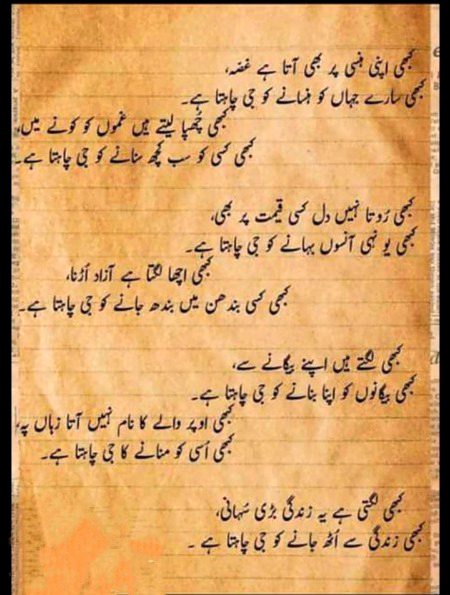 کبھی اپنی ہنسی پر بھی آتا ہے غصّہ،
کبھی سارے جہاں کو ہنسانے کو جی چاہتا ہے۔
کبھی چُھپا لیتے ہیں غموں کو کونے میں،
کبھی کسی کو سب کچھ سنانے کو جی چاہتا ہے۔
کبھی رُوتا نہیں دل کسی قیمت پر بھی،
کبھی یو نہی آنسوں بہانے کو جی چاہتا ہے۔
کبھی اچھا لگتا ہے آزاد اُڑنا،
کبھی کسی بندھن میں بندھ جانے کو جی چاہتا ہے۔
کبھی لگتے ہیں اپنے بیگانے سے،
کبھی بیگانوں کو اپنا بنانے کو جی چاہتا ہے۔
کبھی اوپر والے کا نام نہیں آتا زباں پہ،
کبھی اُسی کو منانے کا جی چاہتا ہے۔
کبھی لگتی ہے یہ زندگی بڑی سُہانی،
کبھی زندگی سے اُٹھ جانے کو جی چاہتا ہے ۔